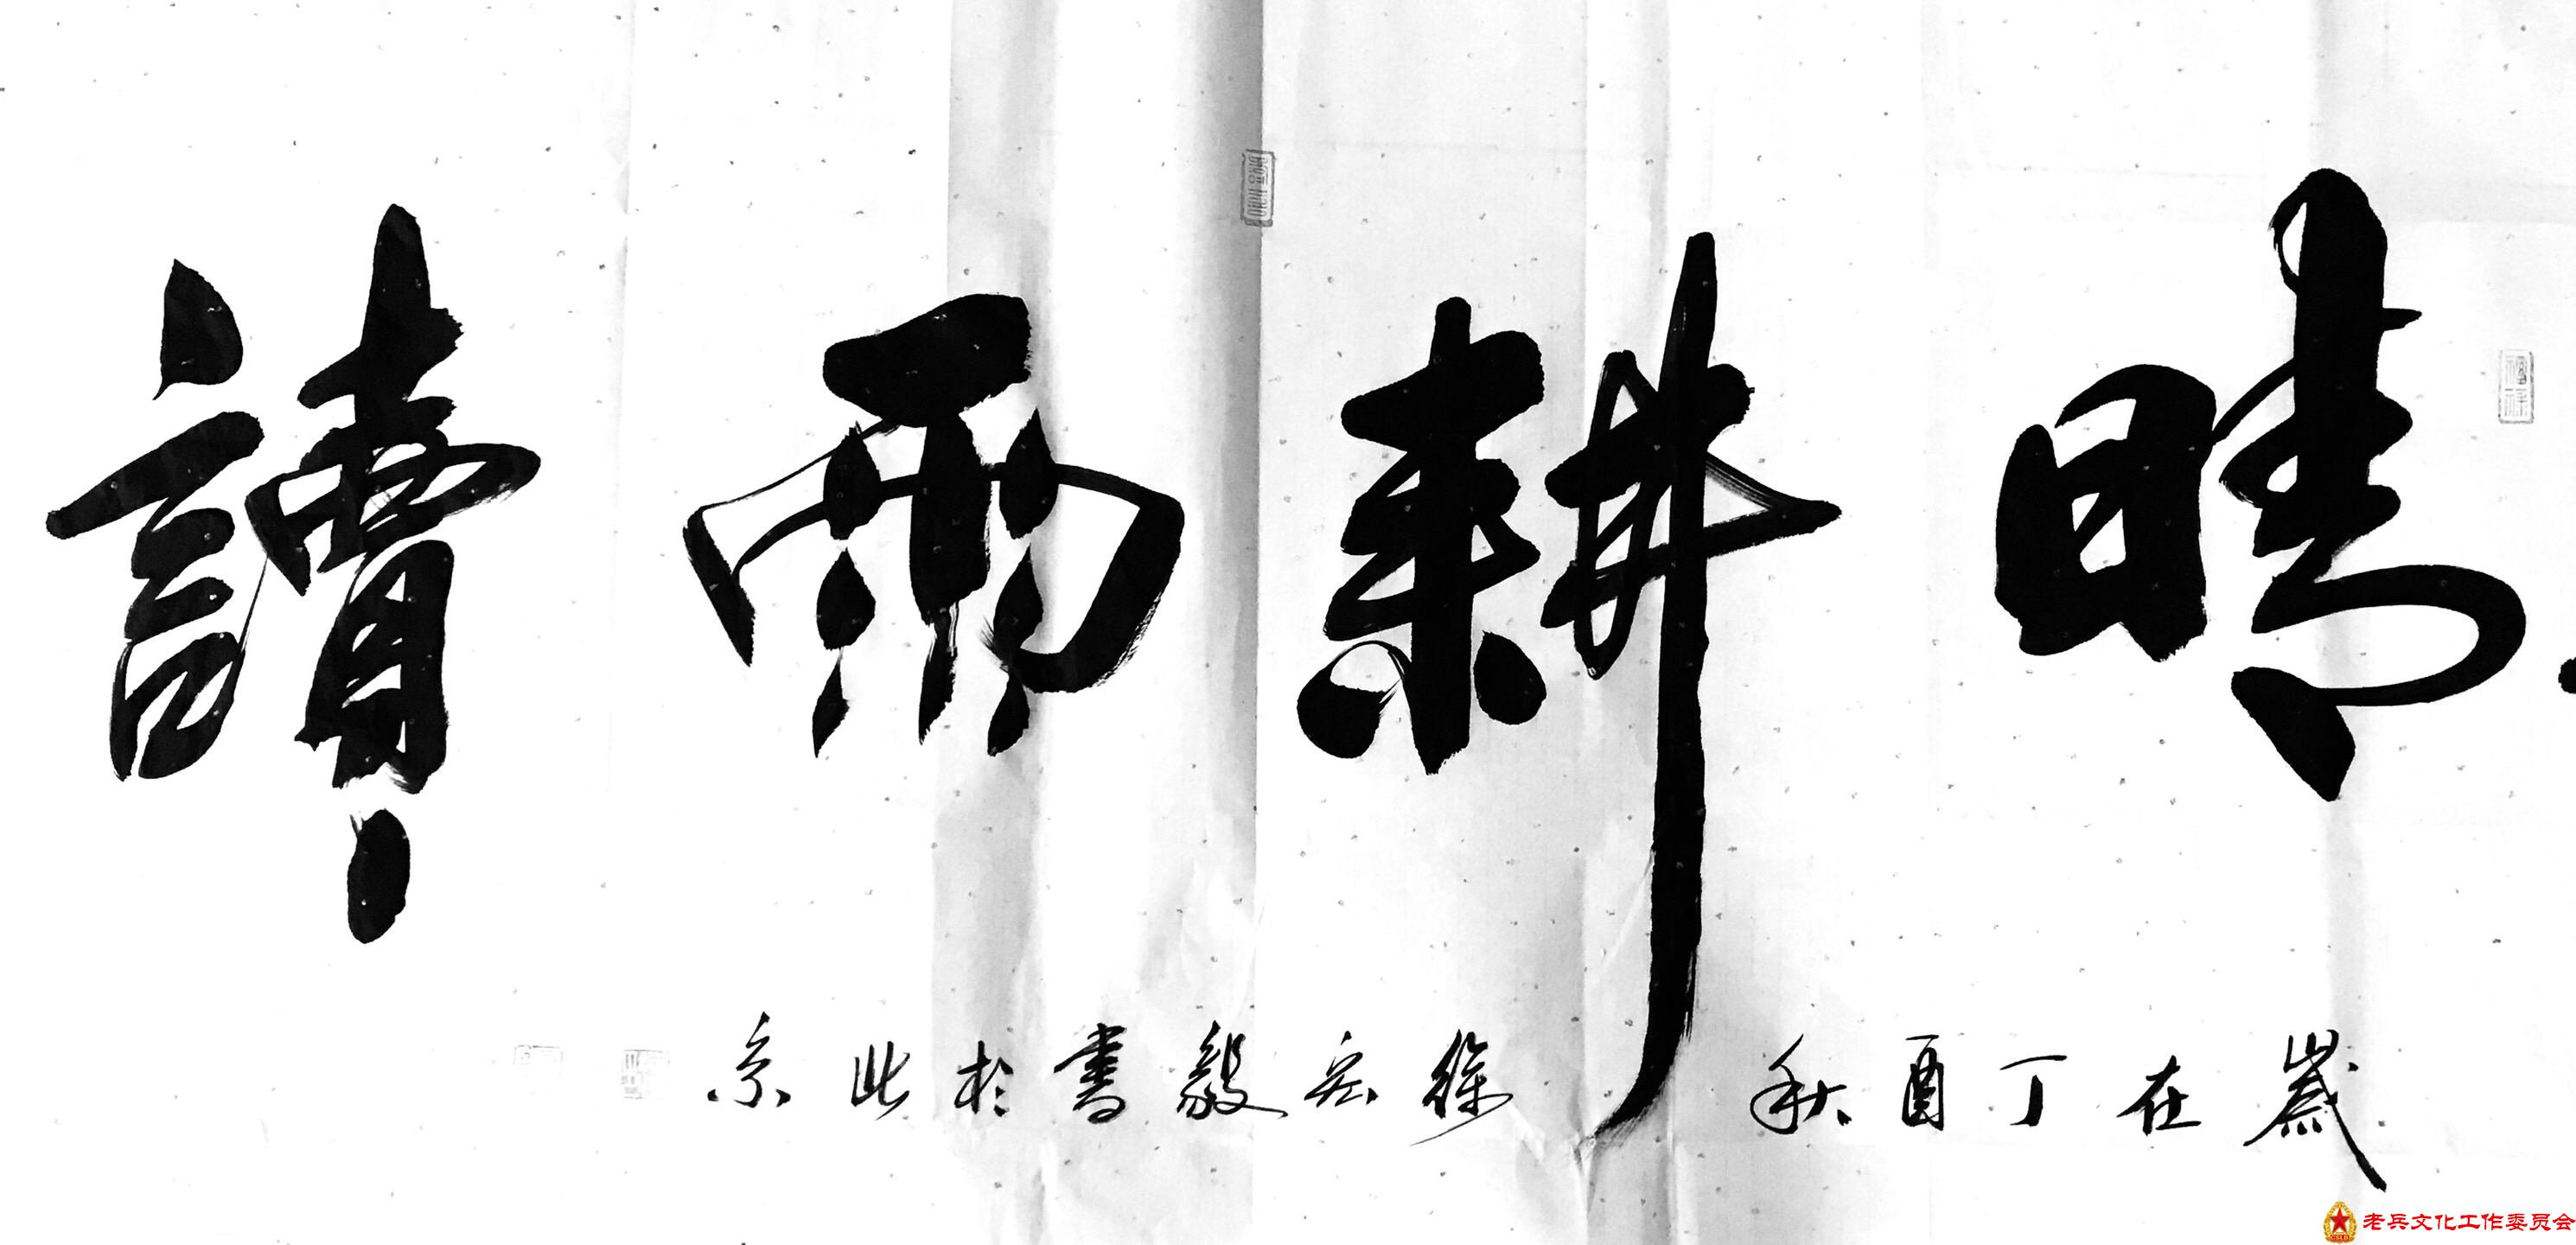 晴耕雨讀
歲在丁酉秋 徐宏毅書於北京
老兵文化工作委员会